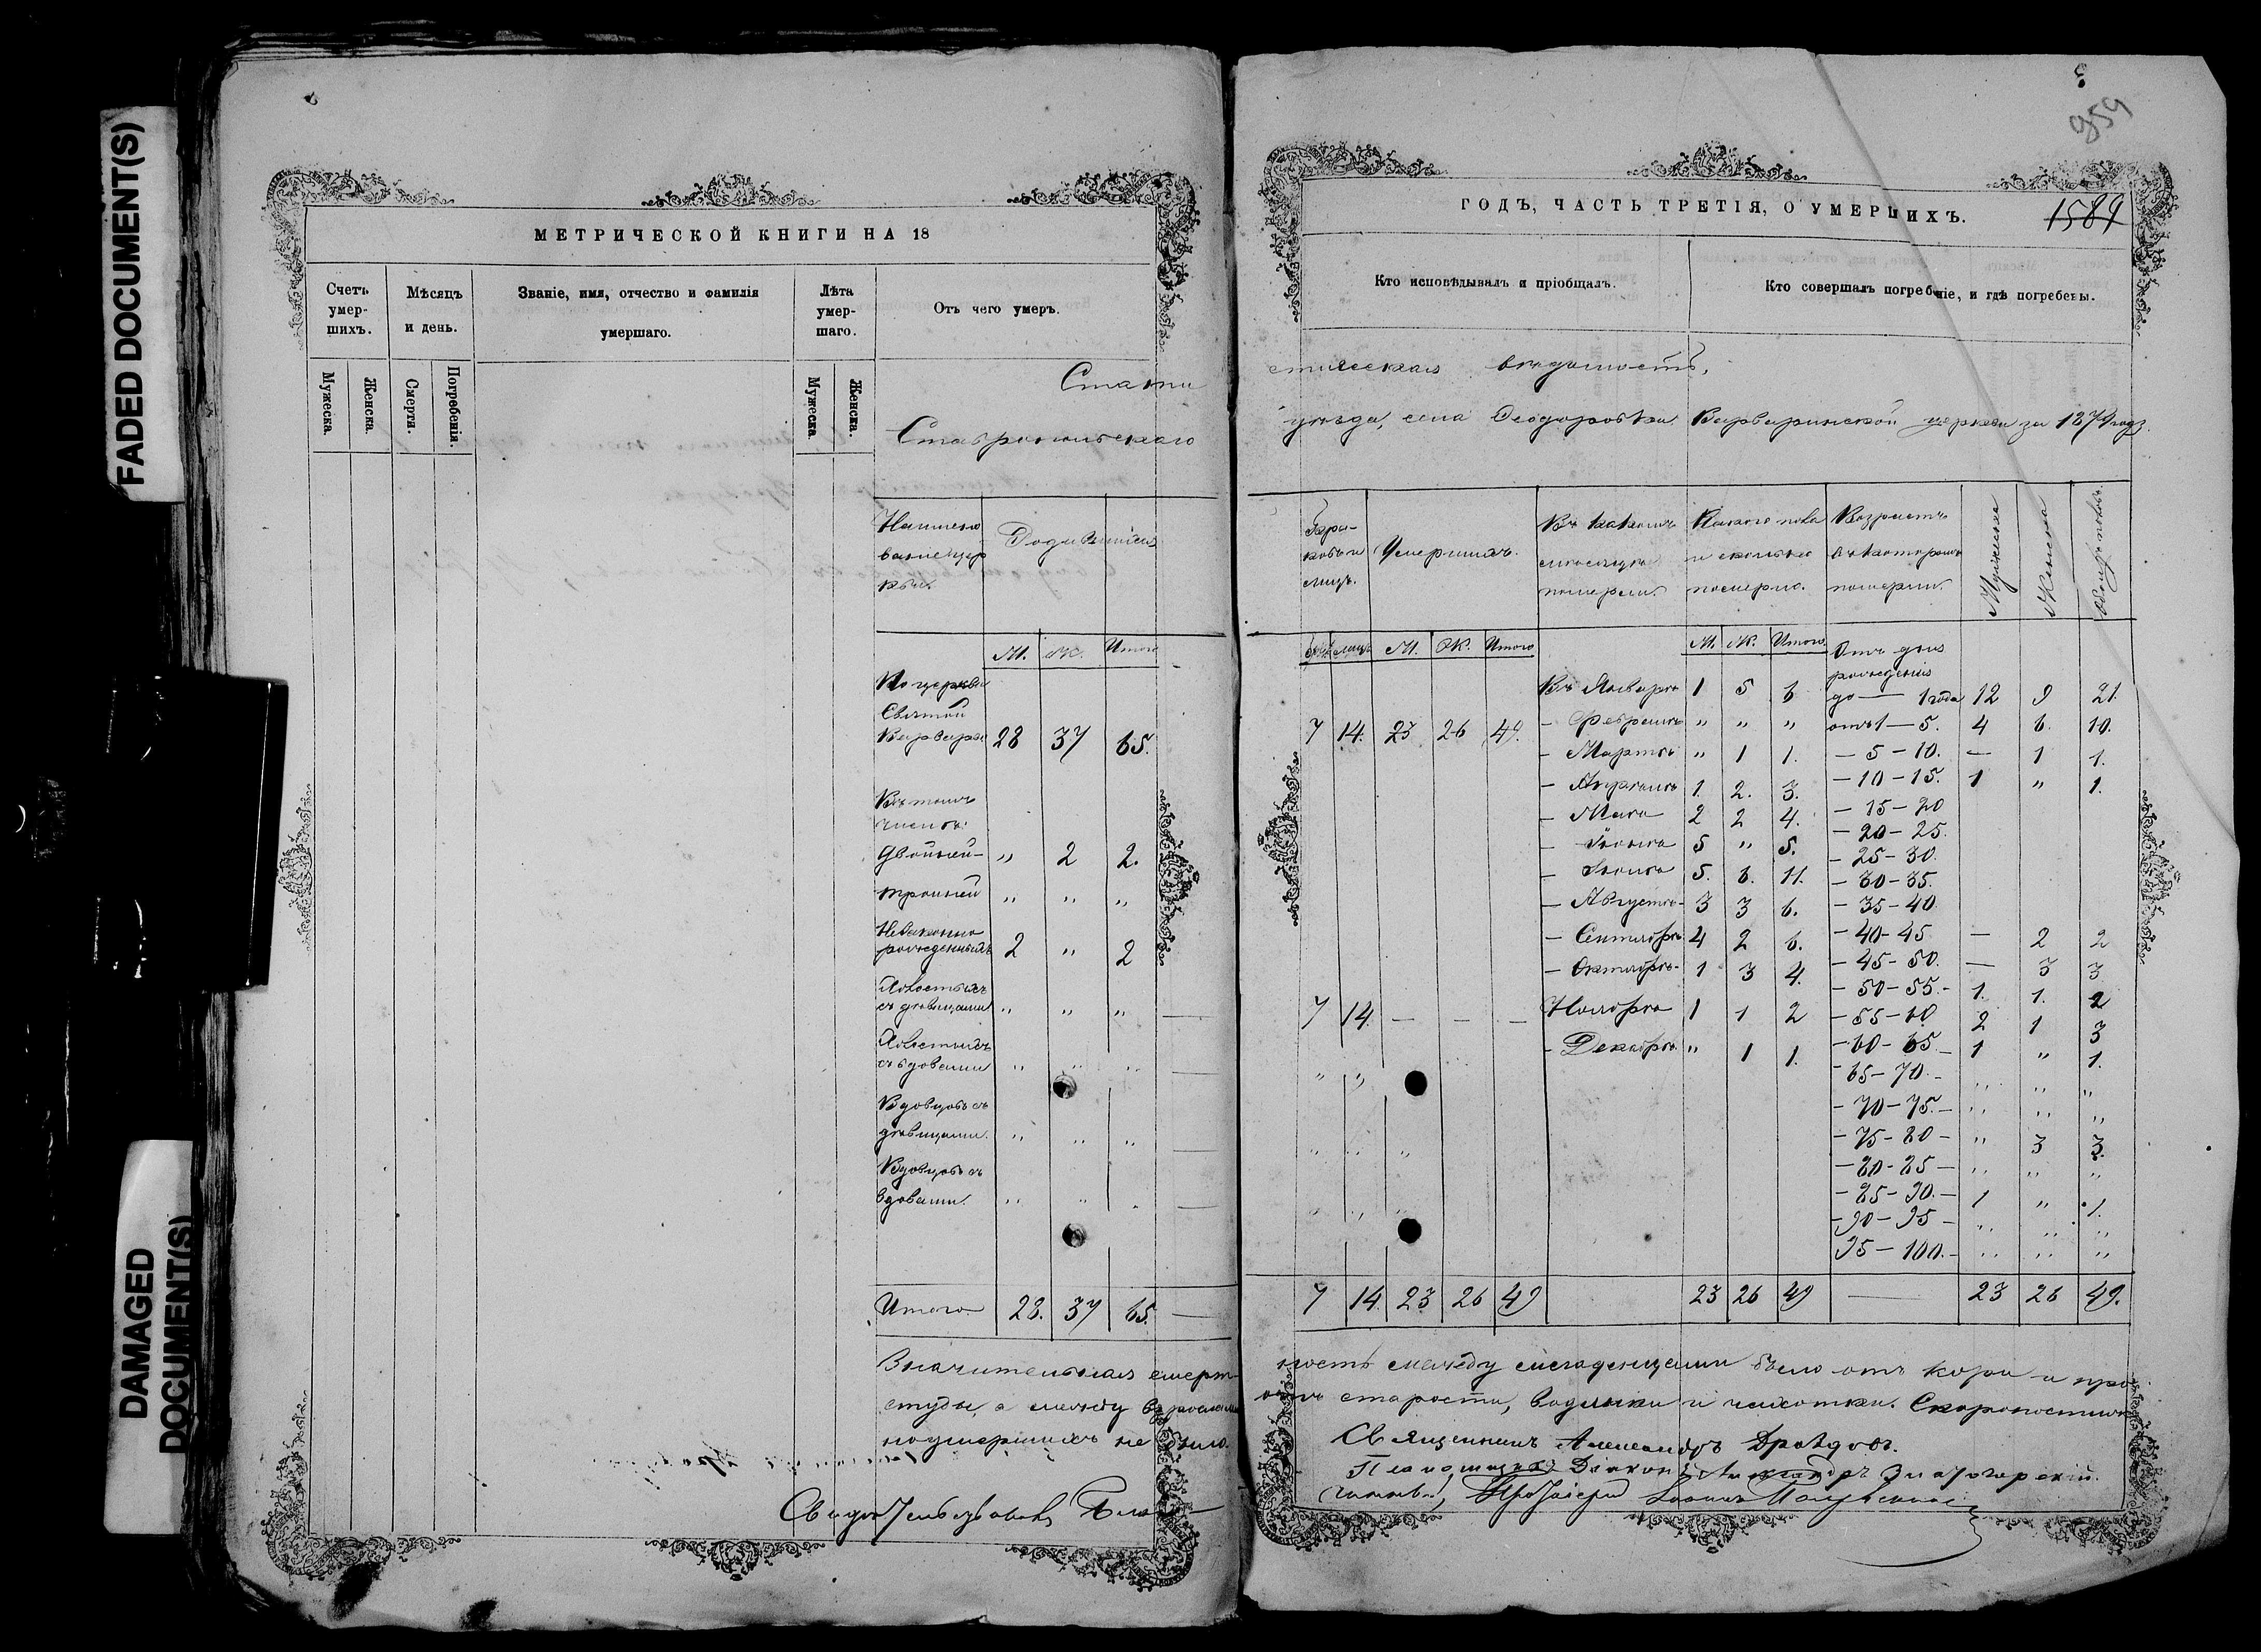 FADED DOCUMENT(S)
DAMAGED
DOCUMENT(S)
МЕТРИЧЕСКОЙ КНИГИ НА 18
Счетъ
умер-
шихъ.
Мѣсяцъ
и день.
Званіе, имя, отчество и фамилія
умершаго.
Лѣта
умер-
шаго.
Отъ чего умеръ.
Мужеска.
Женска.
Смерти.
Погребенія.
Мужеска.
Женска.
Стати
Ставропольскаго
Наимено
ваніе цер
кви.
Родившихся
М. Ж. Итого
По церкви
Святой
Варвары 28 37 65.
Въ томъ
числѣ:
Двойней- " 2 2.
тройней " " "
Незаконно
рожденныхъ 2 " 2
Холостыхъ
съ дѣвицами " " "
Холостыхъ
съ вдовами " " "
Вдовцовъ съ
дѣвицами. " " "
Вдовцовъ съ
вдовами. " " "
Итого 28. 37 65.
Значительная смерт-
студы, а между взрослыми
ноумершихъ не было.
859
ГОДЪ, ЧАСТЬ ТРЕТІЯ, О УМЕРШИХЪ.
1589
Кто исповѣдывалъ и пріобщалъ.
Кто совершалъ погребеніе, и гдѣ погребены.
стическая вѣдомость,
уѣзда, села Ѳеодоровки Варваринской церкви за 1879 годъ.
Бра-
ковъ и
лицъ.
Умершихъ.
Въ какомъ
мѣсяцѣ
померли.
Какого пола
и сколько
померло.
Возрастъ
въ которомъ
померли.
Мужеска
Женска
Обоего пола.
лицъ М. Ж. Итого
М. Ж. Итого
Отъ дня
рожденія
Въ Январѣ 1 5 6 до — 1 года 12 9 21.
7 14. 23 26 49. - Февралѣ " " " отъ 1 — 5. 4 6. 10.
- Мартѣ " 1 1. — 5 — 10. — 1 1.
- Апрѣлѣ 1 2. 3. — 10 — 15. 1 " 1.
- Маѣ 2 2 4. — 15 — 20
- Іюнѣ 5 " 5. — 20 — 25.
— 25 — 30.
- Іюлѣ 5. 6. 11. — 30 — 35.
- Августѣ- 3 3 6. — 35 — 40.
- Сентябрѣ 4 2 6. — 40 - 45 — 2 2
- Октябрѣ- 1 3 4. — 45 — 50. — 3 3
— 50 — 55.- 1. 1. 2
7 14. — — — Ноябрѣ 1 1 2 — 55 — 60 2 1 3
- Декабрѣ " 1 1. — 60 - 65 - 1 " 1.
" " — 65 — 70. - " " "
— 70 — 75. - " " "
" " " — 75 — 80 - " 3 3.
— 80 - 85 — " " "
— 85 — 90. — 1 " 1.
" " " — 90 — 95 — " " "
95 — 100. — " " "
7 14. 23 26 49 23 26 49 — 23 26 49.
ность между младенцами была отъ кори и про
отъ старости, водянки и чахотки. Скоропостижно
Священникъ Александръ Дроздовъ.
Діаконъ Александръ Златогорскій.